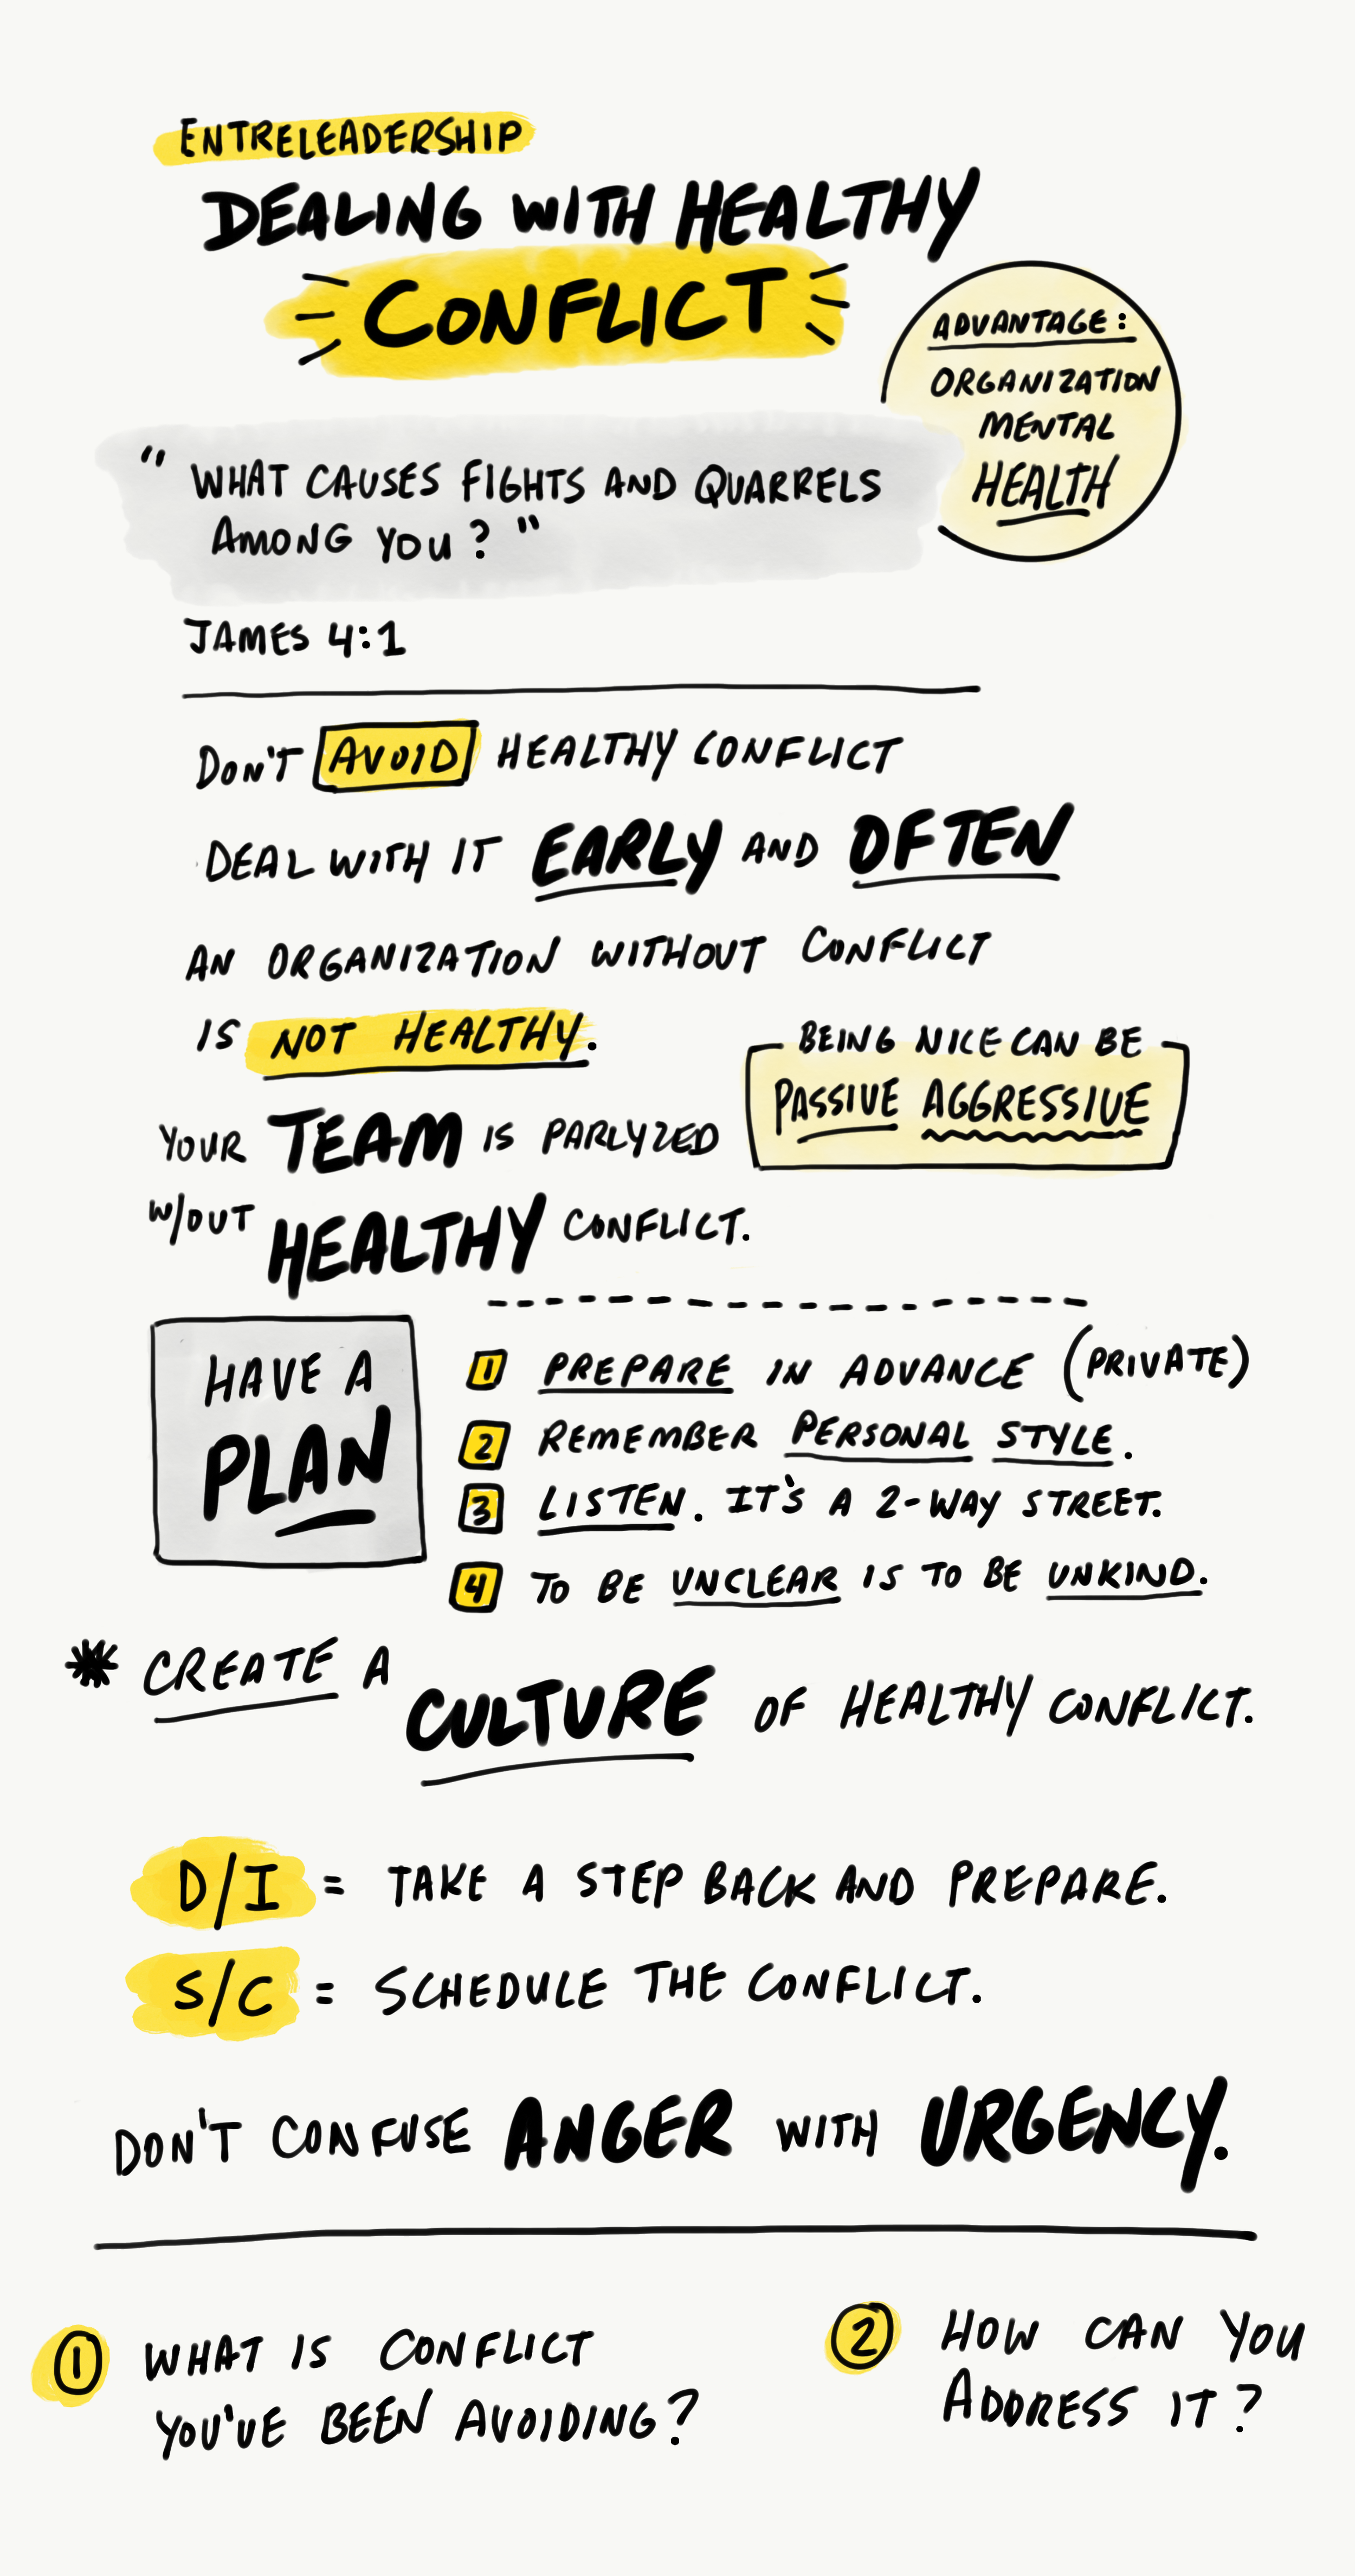 ENTRELEADERSHIP
DEALING WITH HEALTHY
CONFLICT
ADVANTAGE:
ORGANIZATION
MENTAL
HEALTH
" WHAT CAUSES FIGHTS AND QUARRELS
AMONG YOU? "
JAMES 4:1
DON'T AVOID HEALTHY CONFLICT
DEAL WITH IT EARLY AND OFTEN
AN ORGANIZATION WITHOUT CONFLICT
IS NOT HEALTHY.
BEING NICE CAN BE
PASSIVE AGGRESSIVE
YOUR TEAM IS PARLYZED
W/OUT HEALTHY CONFLICT.
HAVE A
PLAN
1 PREPARE IN ADVANCE (PRIVATE)
2 REMEMBER PERSONAL STYLE.
3 LISTEN. IT'S A 2-WAY STREET.
4 TO BE UNCLEAR IS TO BE UNKIND.
* CREATE A CULTURE OF HEALTHY CONFLICT.
D/I = TAKE A STEP BACK AND PREPARE.
S/C = SCHEDULE THE CONFLICT.
DON'T CONFUSE ANGER WITH URGENCY.
1 WHAT IS CONFLICT
YOU'VE BEEN AVOIDING?
2 HOW CAN YOU
ADDRESS IT?